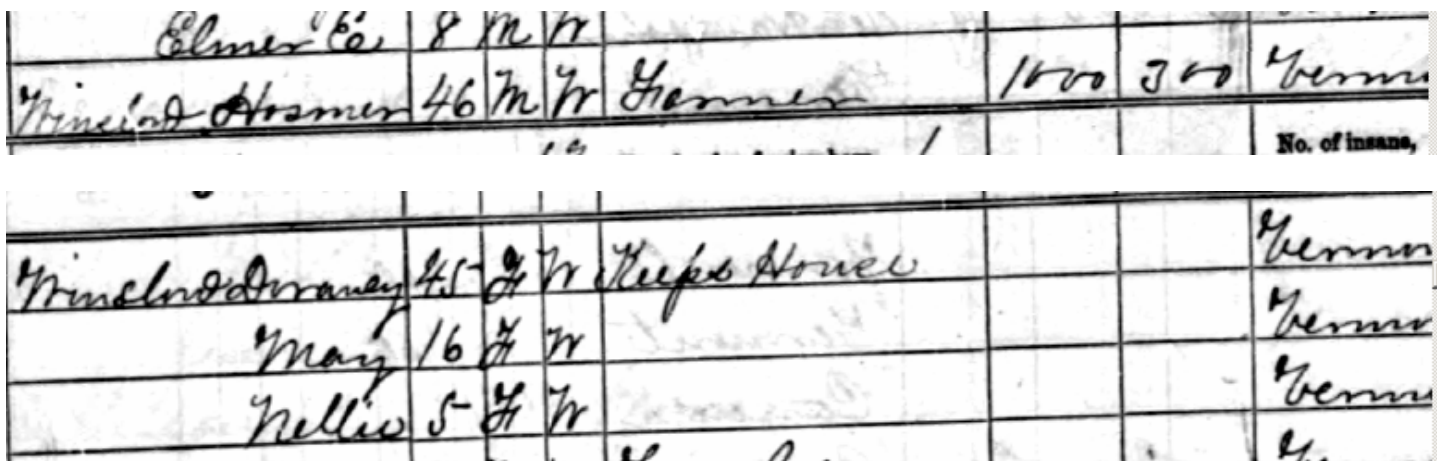 Elmer E. 8 M W
Winslod Hosmer 46 M W Farmer 1000 300 Vermo
No. of insane,
Winslod 45 F W Keeps House Vermo
May 16 F W Vermo
Nellie 5 F W Vermo